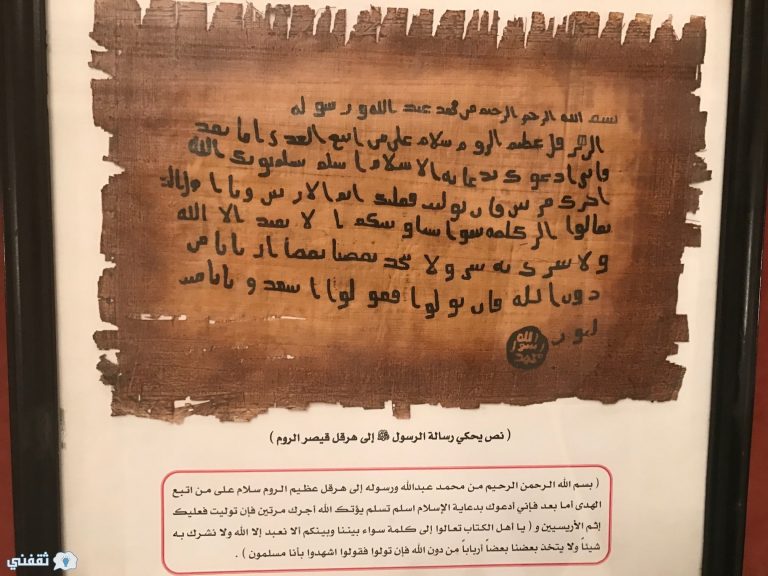 بسم الله الرحمن الرحيم من محمد عبد الله ورسوله
الى هرقل عظيم الروم سلام على من اتبع الهدى اما بعد
فانى ادعوك بدعاية الاسلام اسلم تسلم يوتك الله
اجرك مرتين فان توليت فعليك اثم الاريسين ويا
تعالوا الى كلمة سوا بيننا وبينكم الا نعبد الا الله
ولا نشرك به ولا يتخذ بعضنا بعضا اربابا من
دون الله فان تولوا فقولوا اشهدوا بانا
الله
رسول
محمد
( نص يحكي رسالة الرسول ﷺ إلى هرقل قيصر الروم )
( بسم الله الرحمن الرحيم من محمد عبدالله ورسوله إلى هرقل عظيم الروم سلام على من اتبع
الهدى أما بعد فإني أدعوك بدعاية الإسلام اسلم تسلم يؤتك الله أجرك مرتين فإن توليت فعليك
إثم الأريسيين و ( يا أهل الكتاب تعالوا إلى كلمة سواء بيننا وبينكم ألا نعبد إلا الله ولا نشرك به
شيئاً ولا يتخذ بعضنا بعضاً أرباباً من دون الله فإن تولوا فقولوا اشهدوا بأنا مسلمون ) .
ثقفني